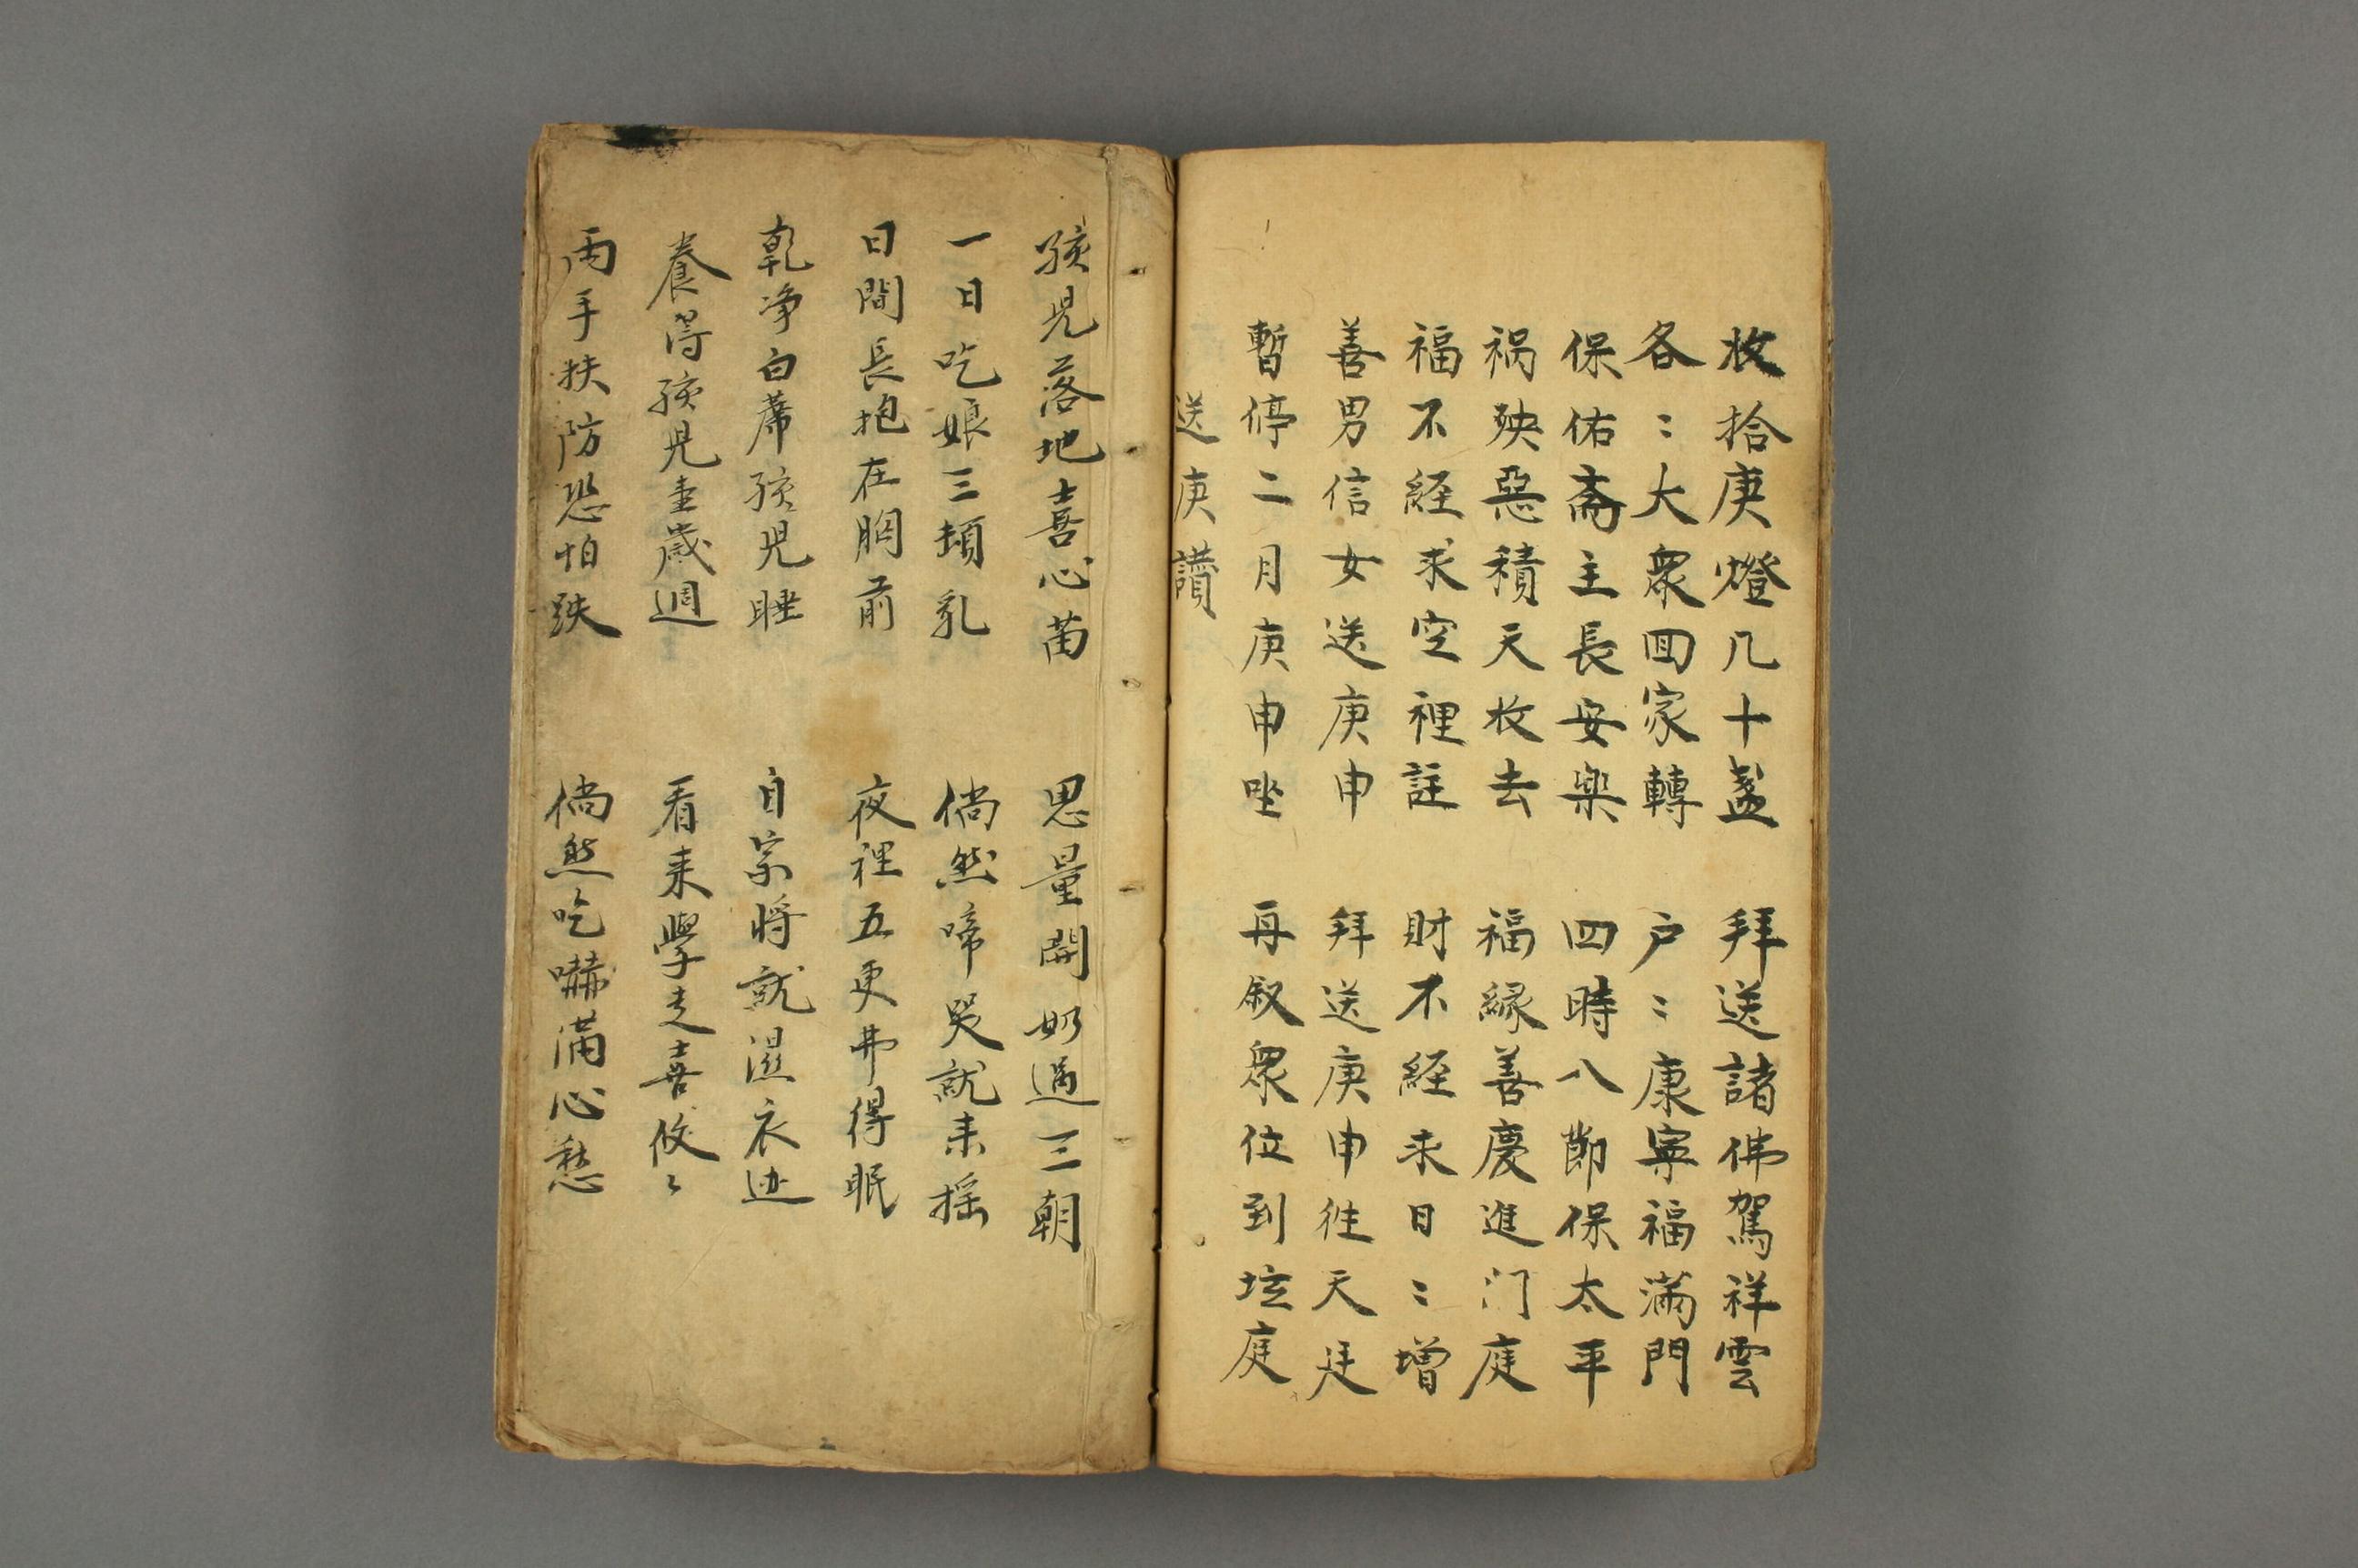 收拾庚燈几十盞 拜送諸佛駕祥雲
各〻大衆回家轉 户〻康寧福滿門
保佑斋主長安楽 四時八節保太平
祸殃惡積天收去 福緣善慶進门庭
福不經求空裡註 財不經求日〻增
善男信女送庚申 拜送庚申徃天廷
暫停二月庚申唑 再叙衆位到坛庭
送庚讚
孩児落地喜心苗 思量開奶過三朝
一日吃娘三頓乳 倘然啼哭就来摇
日間長抱在胸前 夜裡五更弗得眠
乾净白蓆孩児睡 自家将就濕衣边
養得孩児壹歲週 看来學走喜悠〻
両手扶防恐怕跌 倘然吃嚇滿心愁